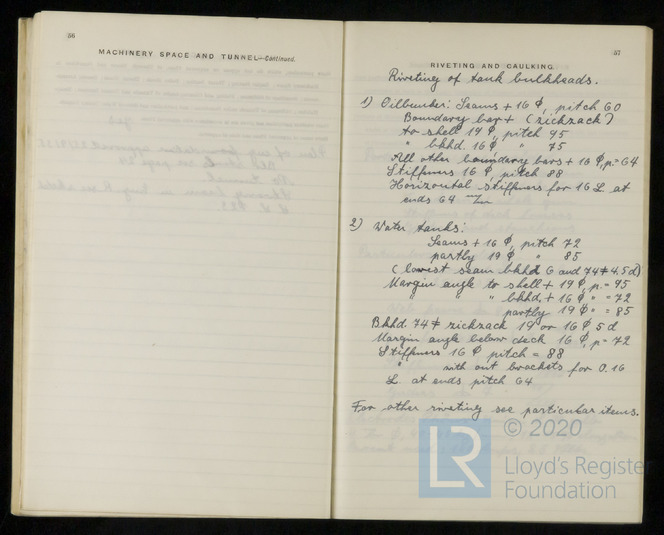 56
MACHINERY SPACE AND TUNNEL—Continued.
57
RIVETING AND CAULKING
Riveting of tank bulkheads.
1) Oilbunker: Seams + 16 ϕ, pitch 60
Boundary bar + (zickzack)
to shell 19 ϕ, pitch 95
" bkhd. 16 ϕ " 75
All other boundary bars + 16 ϕ, p = 64
Stiffners 16 ϕ, pitch 88
Horizontal stiffners for 16 L. at
ends 64
2) Water tanks:
Seams + 16 ϕ, pitch 72
partly 19 ϕ " 85
(lowest seam bkhd 6 and 74 ≠ 4.5 d)
Margin angle to shell + 19 ϕ, p = 95
" " " bkhd. + 16 ϕ " = 72
partly 19 ϕ " = 85
Bkhd. 74 ≠ zickzack 19 or 16 ϕ 5 d
Margin angle below deck 16 ϕ, p = 72
Stiffners 16 ϕ pitch = 88
" with out brackets for 0.16
L. at ends pitch 64
For other riveting see particular items.
© 2020
LR
Lloyd's Register
Foundation